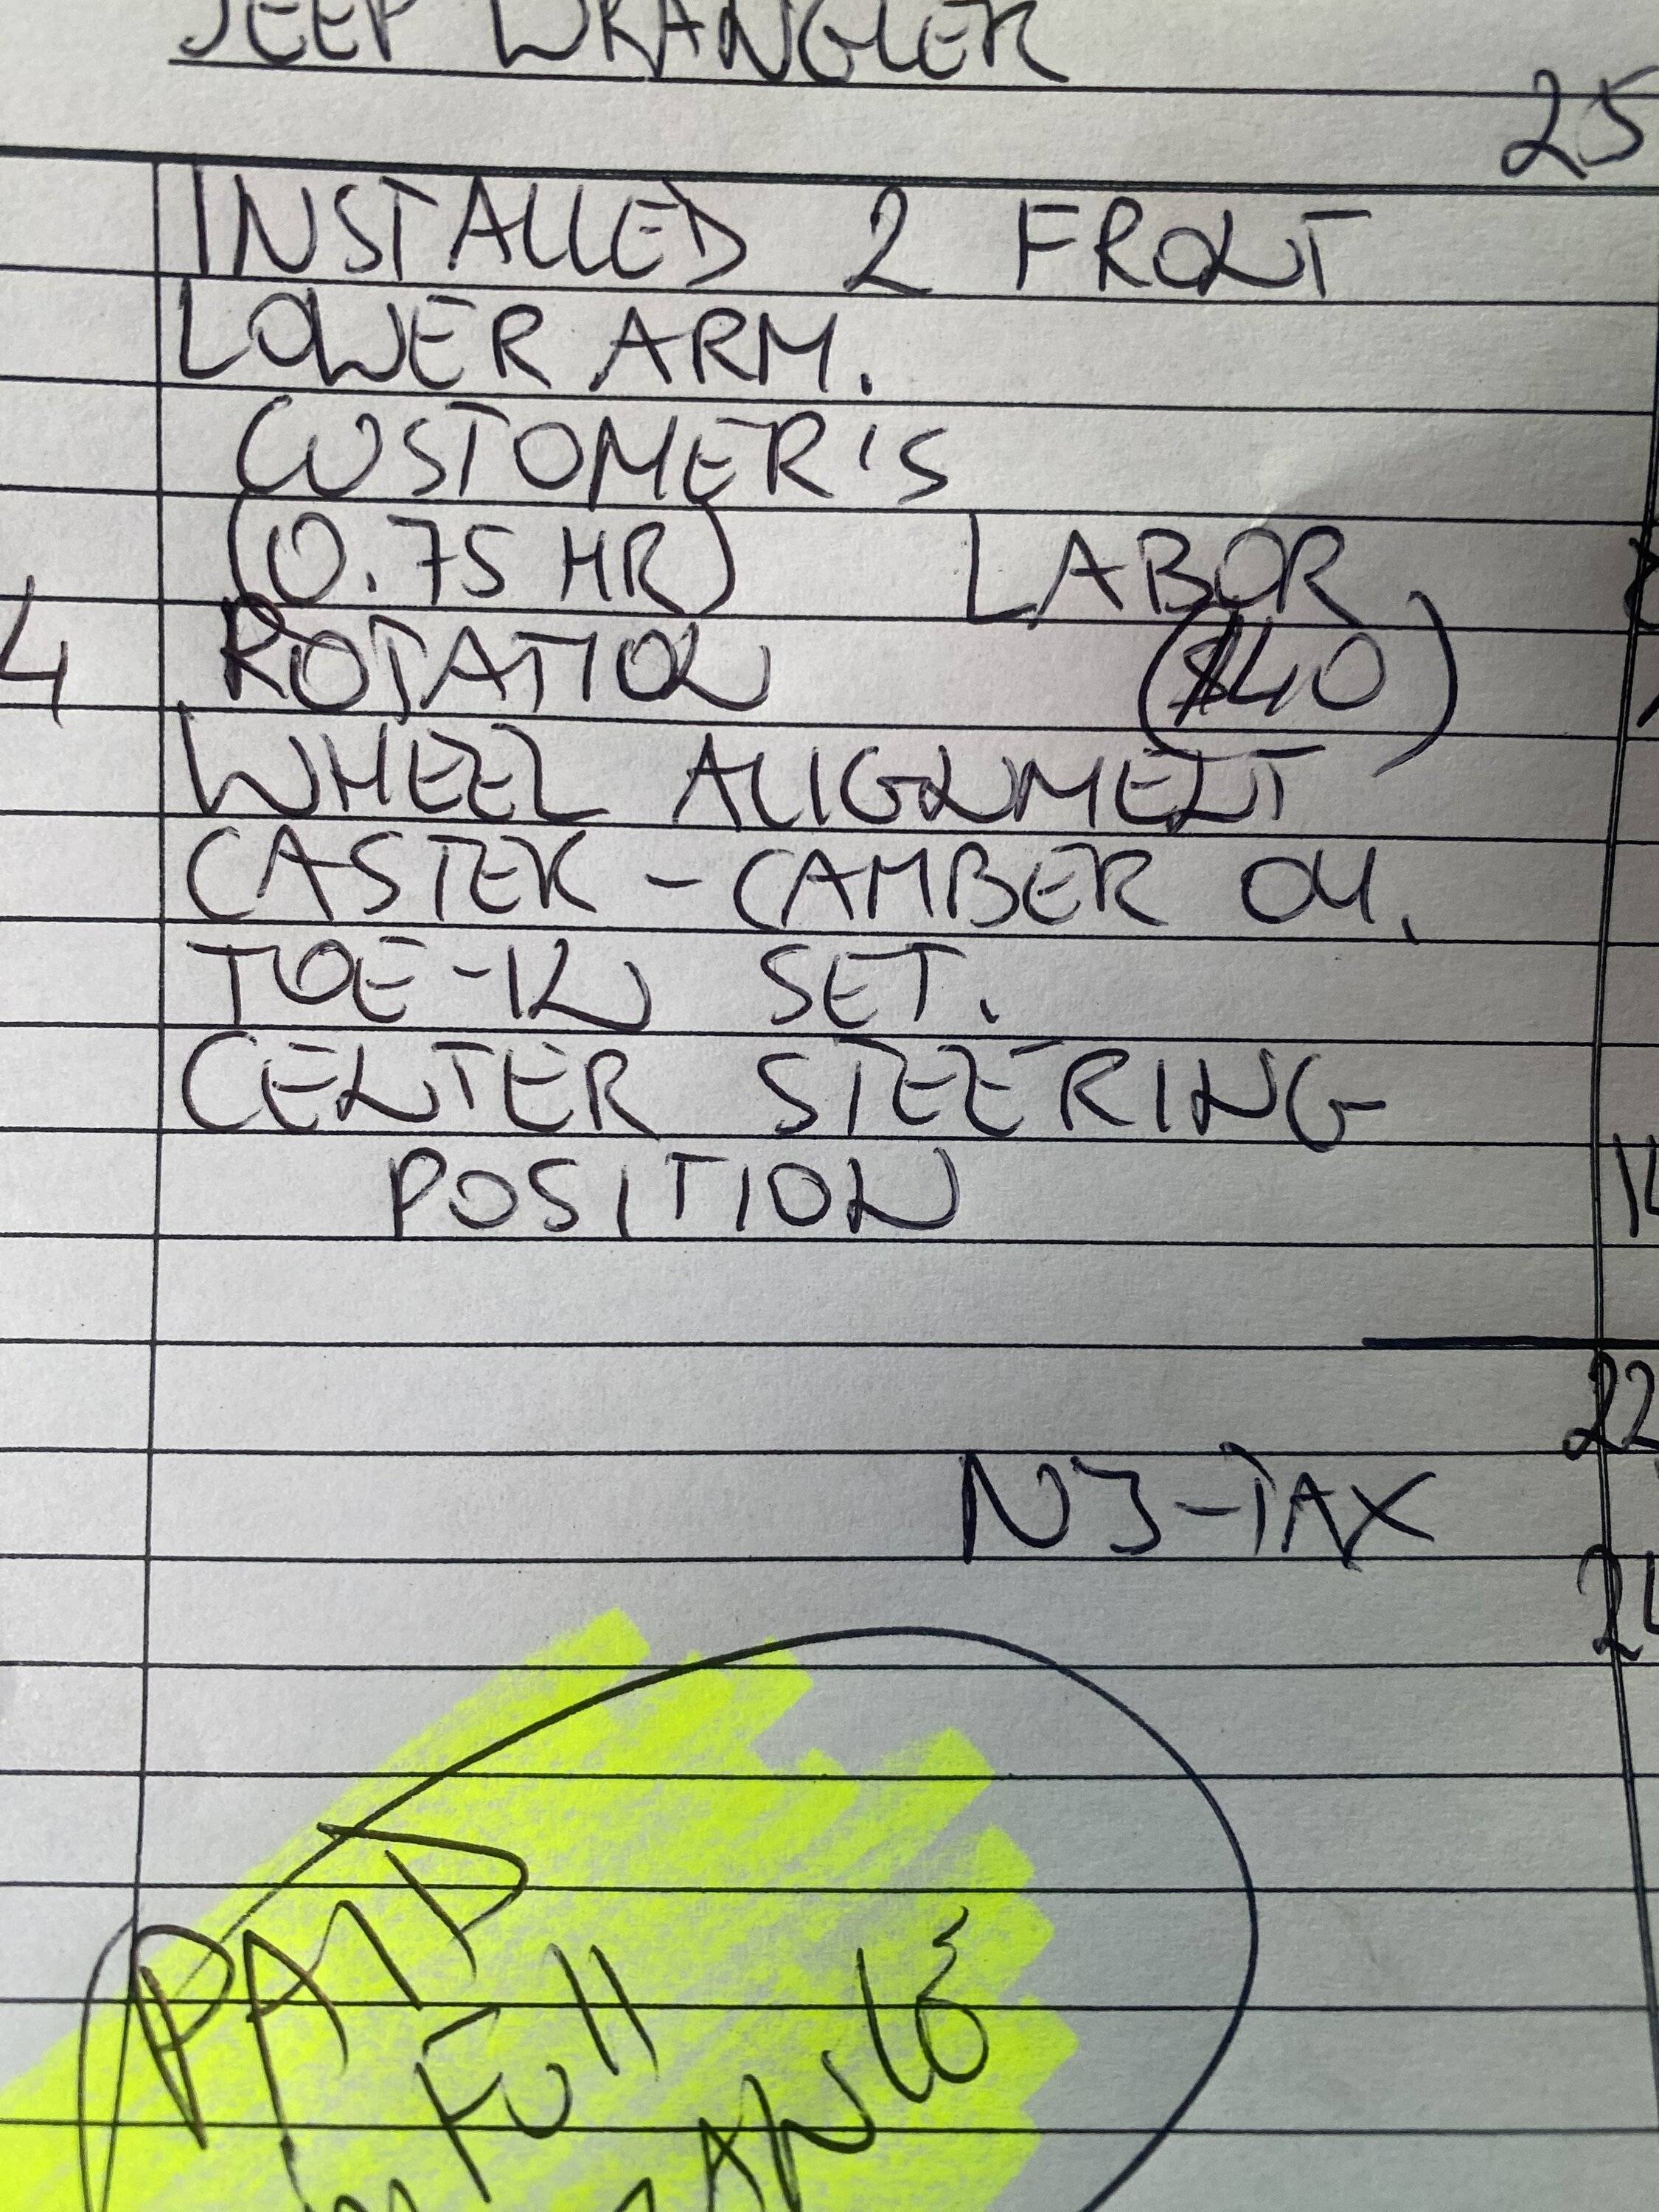 JEEP WRANGLER
25
INSTALLED 2 FRONT
LOWER ARM.
CUSTOMER'S
(0.75 HR) LABOR
4 ROTATION ($40)
WHEEL ALIGNMENT
CASTER - CAMBER OK.
TOE-IN SET.
CENTER STEERING
POSITION
22
NJ-TAX
24
PAID
Full